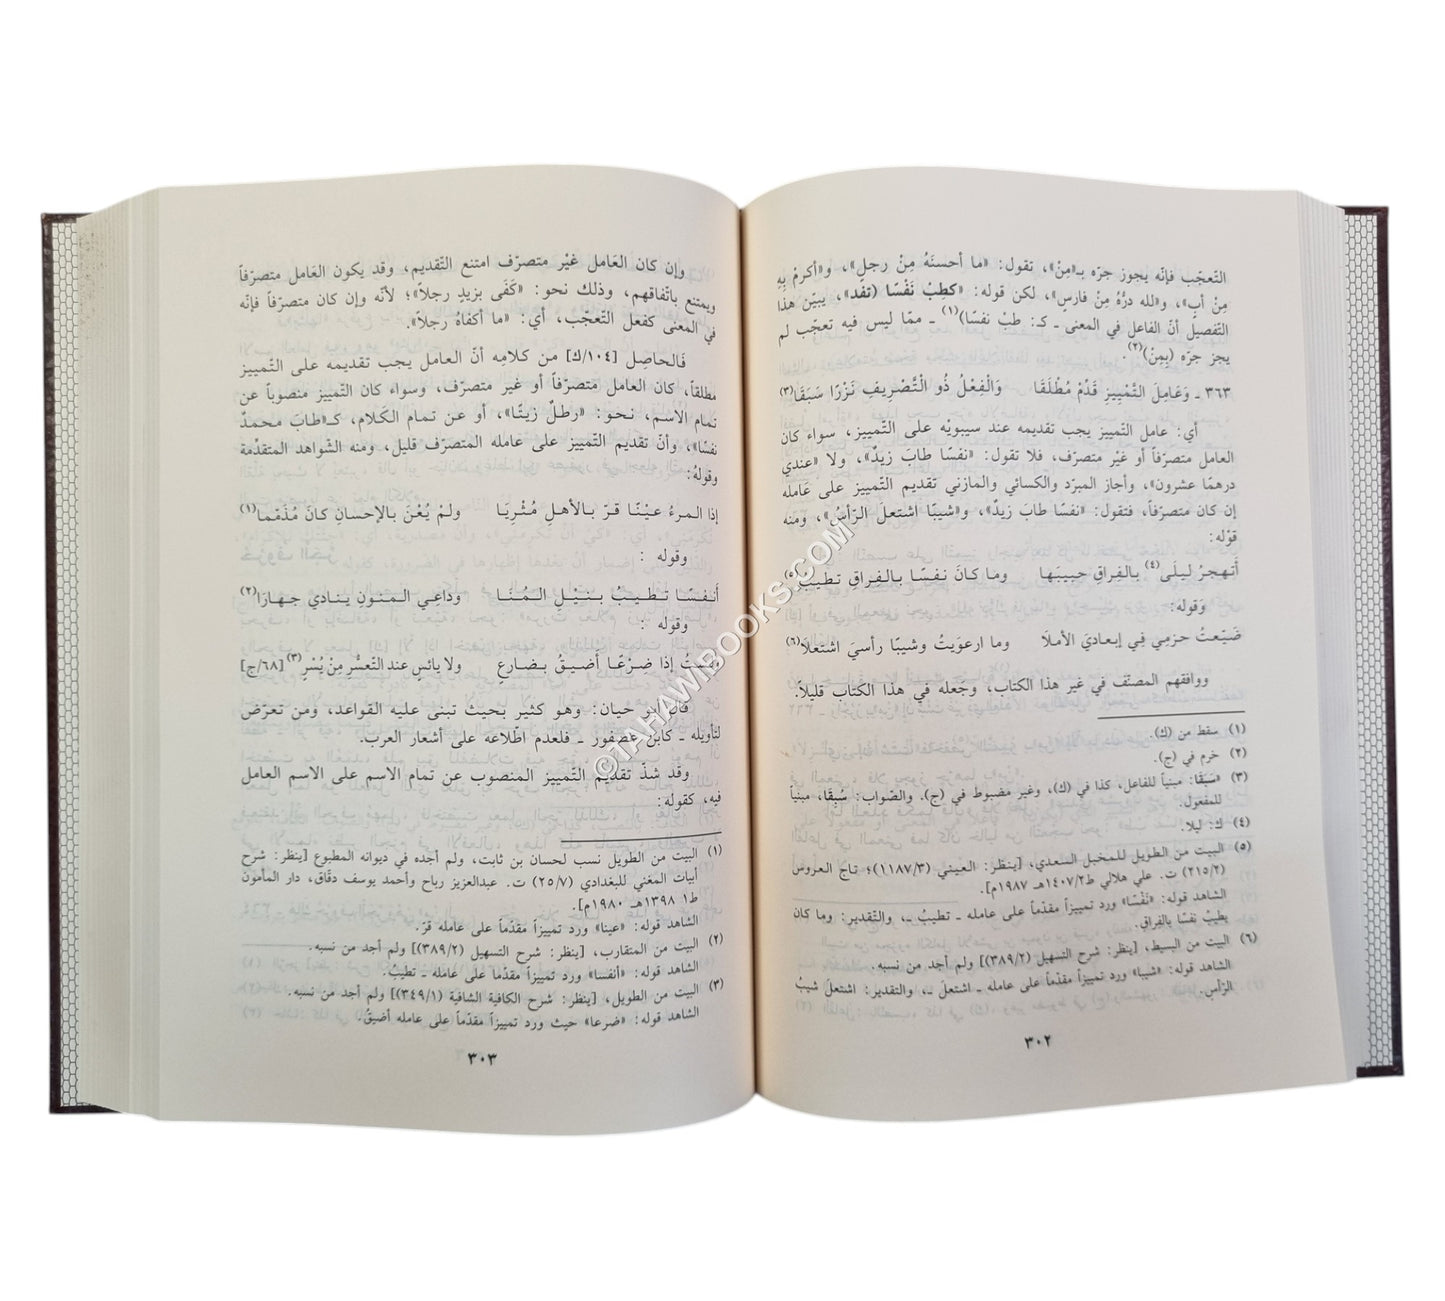 التّعجّب فإنّه يجوز جرّه بـ«مِنْ»، تقول: «ما أحسنَهُ مِنْ رجلٍ»، و«أكرِمْ بِهِ
مِنْ أبٍ»، و«لله درُّهُ مِنْ فارسٍ»، لكن قوله: «كَطِبْ نَفْسًا (تفد»، يبيّن هذا
التّفصيل أنّ الفاعل في المعنى ـ كـ: طبْ نفسًا)(١) ـ ممّا ليس فيه تعجّب لم
يجز جرّه (بِمِنْ)(٢).
٣٦٣ ـ وَعَامِلَ التَّمْيِيزِ قَدِّمْ مُطْلَقَا وَالْفِعْلُ ذُو التَّصْرِيفِ نَزْرًا سَبَقَا(٣)
أي: عامل التّمييز يجب تقديمه عند سيبويْه على التّمييز، سواء كان
العامل متصرّفاً أو غيْر متصرّف، فلا تقول: «نفسًا طابَ زيدٌ»، ولا «عندي
درهمًا عشرون»، وأجاز المبرّد والكسائي والمازني تقديم التّمييز على عَامله
إن كان متصرّفاً، فتقول: «نفسًا طابَ زيدٌ»، و«شيبًا اشتعلَ الرّأسُ»، ومنه
قوْله:
أَتهجرُ ليلَى(٤) بالفِراقِ حبيبَها وما كانَ نفسًا بالفِراقِ تطيبُ(٥)
وَقوله:
ضَيّعتُ حزمِي فِي إبعادِيَ الأملَا وما ارعوَيتُ وشيبًا رأسيَ اشتعَلَا(٦)
ووافقهم المصنّف في غير هذا الكتاب، وجَعله في هذا الكتاب قليلاً.
(١) سقط من (ك).
(٢) خرم في (ج).
(٣) «سَبَقَا: مبنياً للفاعل، كذا في (ك)، وغير مضبوط في (ج). والصّواب: سُبِقَا، مبنياً
للمفعول.
(٤) ك: ليلا.
(٥) البيت من الطويل للمخبل السعدي، [ينظر: العيني (١١٨٧/٣)؛ تاج العروس
(٢١٥/٢) ت. علي هلالي ط١٤٠٧/٢هـ ١٩٨٧م].
الشاهد قوله: «نَفْسًا» ورد تمييزاً مقدّماً على عامله ـ تطيبُ ـ، والتّقدير: وما كان
يطيبُ نفسًا بالفراق.
(٦) البيت من البسيط، [ينظر: شرح التسهيل (٣٨٩/٢)] ولم أجد من نسبه.
الشاهد قوله: «شيبا» ورد تمييزاً مقدّماً على عامله ـ اشتعلَ ـ، والتقدير: اشتعلَ شيبُ
الرّأس.
٣٠٢
وإن كان العَامل غيْر متصرّف امتنع التّقديم، وقد يكون العَامل متصرّفاً
ويمتنع باتّفاقهم، وذلك نحو: «كَفَى بزيدٍ رجلاً»؛ لأنّه وإن كان متصرّفاً فإنّه
في المعنى كفعل التّعجّب، أي: «ما أكفاهُ رجلاً».
فَالحاصِل [١٠٤/ك] من كلامه أنّ العامل يجب تقديمه على التّمييز
مطلقاً، كان العامل متصرّفاً أو غير متصرّف، وسواء كان التّمييز منصوباً عن
تمام الاسم، نحو: «رطلٌ زيتًا»، أو عن تمام الكَلام، كـ«طابَ محمدٌ
نفسًا»، وأنّ تقديم التّمييز على عامله المتصرّف قليل، ومنه الشّواهد المتقدّمة
وقولهُ:
إذا المرءُ عيْنًا قرّ بالأهلِ مُثْرِيًا ولمْ يُعْنَ بالإحسانِ كانَ مُذَمّما(١)
وقوله :
أنفسًا تطيبُ بنيْلِ المُنَا ودَاعِي المنونِ ينادي جهارَا(٢)
وقوله :
ولستُ إذا ضرْعًا أضيقُ بضارعٍ ولا يائسٍ عند التّعسُّرِ مِنْ يُسْرِ(٣) [٦٨/ج]
قال أبو حيان: وهو كثير بحيث تبنى عليه القواعد، ومن تعرّض
لتأويله ـ كابن عصفور ـ فلعدم اطّلاعه على أشعار العرب.
وقد شذّ تقديم التّمييز المنصوب عن تمام الاسم على الاسم العامل
فيه، كقوله:
(١) البيت من الطويل نسب لحسان بن ثابت، ولم أجده في ديوانه المطبوع [ينظر: شرح
أبيات المغني للبغدادي (٢٥/٧) ت. عبدالعزيز رباح وأحمد يوسف دقّاق، دار المأمون
ط١ ١٣٩٨هـ ١٩٨٠م].
الشاهد قوله: «عينا» ورد تمييزاً مقدّماً على عامله قرّ.
(٢) البيت من المتقارب، [ينظر: شرح التسهيل (٣٨٩/٢)] ولم أجد من نسبه.
الشاهد قوله: «أنفسا» ورد تمييزاً مقدّماً على عامله ـ تطيبُ.
(٣) البيت من الطويل، [ينظر: شرح الكافية الشافية (٣٤٩/١)] ولم أجد من نسبه.
الشاهد قوله: «ضرعا» حيث ورد تمييزاً مقدّماً على عامله أضيقُ.
٣٠٣
©TAHAWIBOOKS.COM